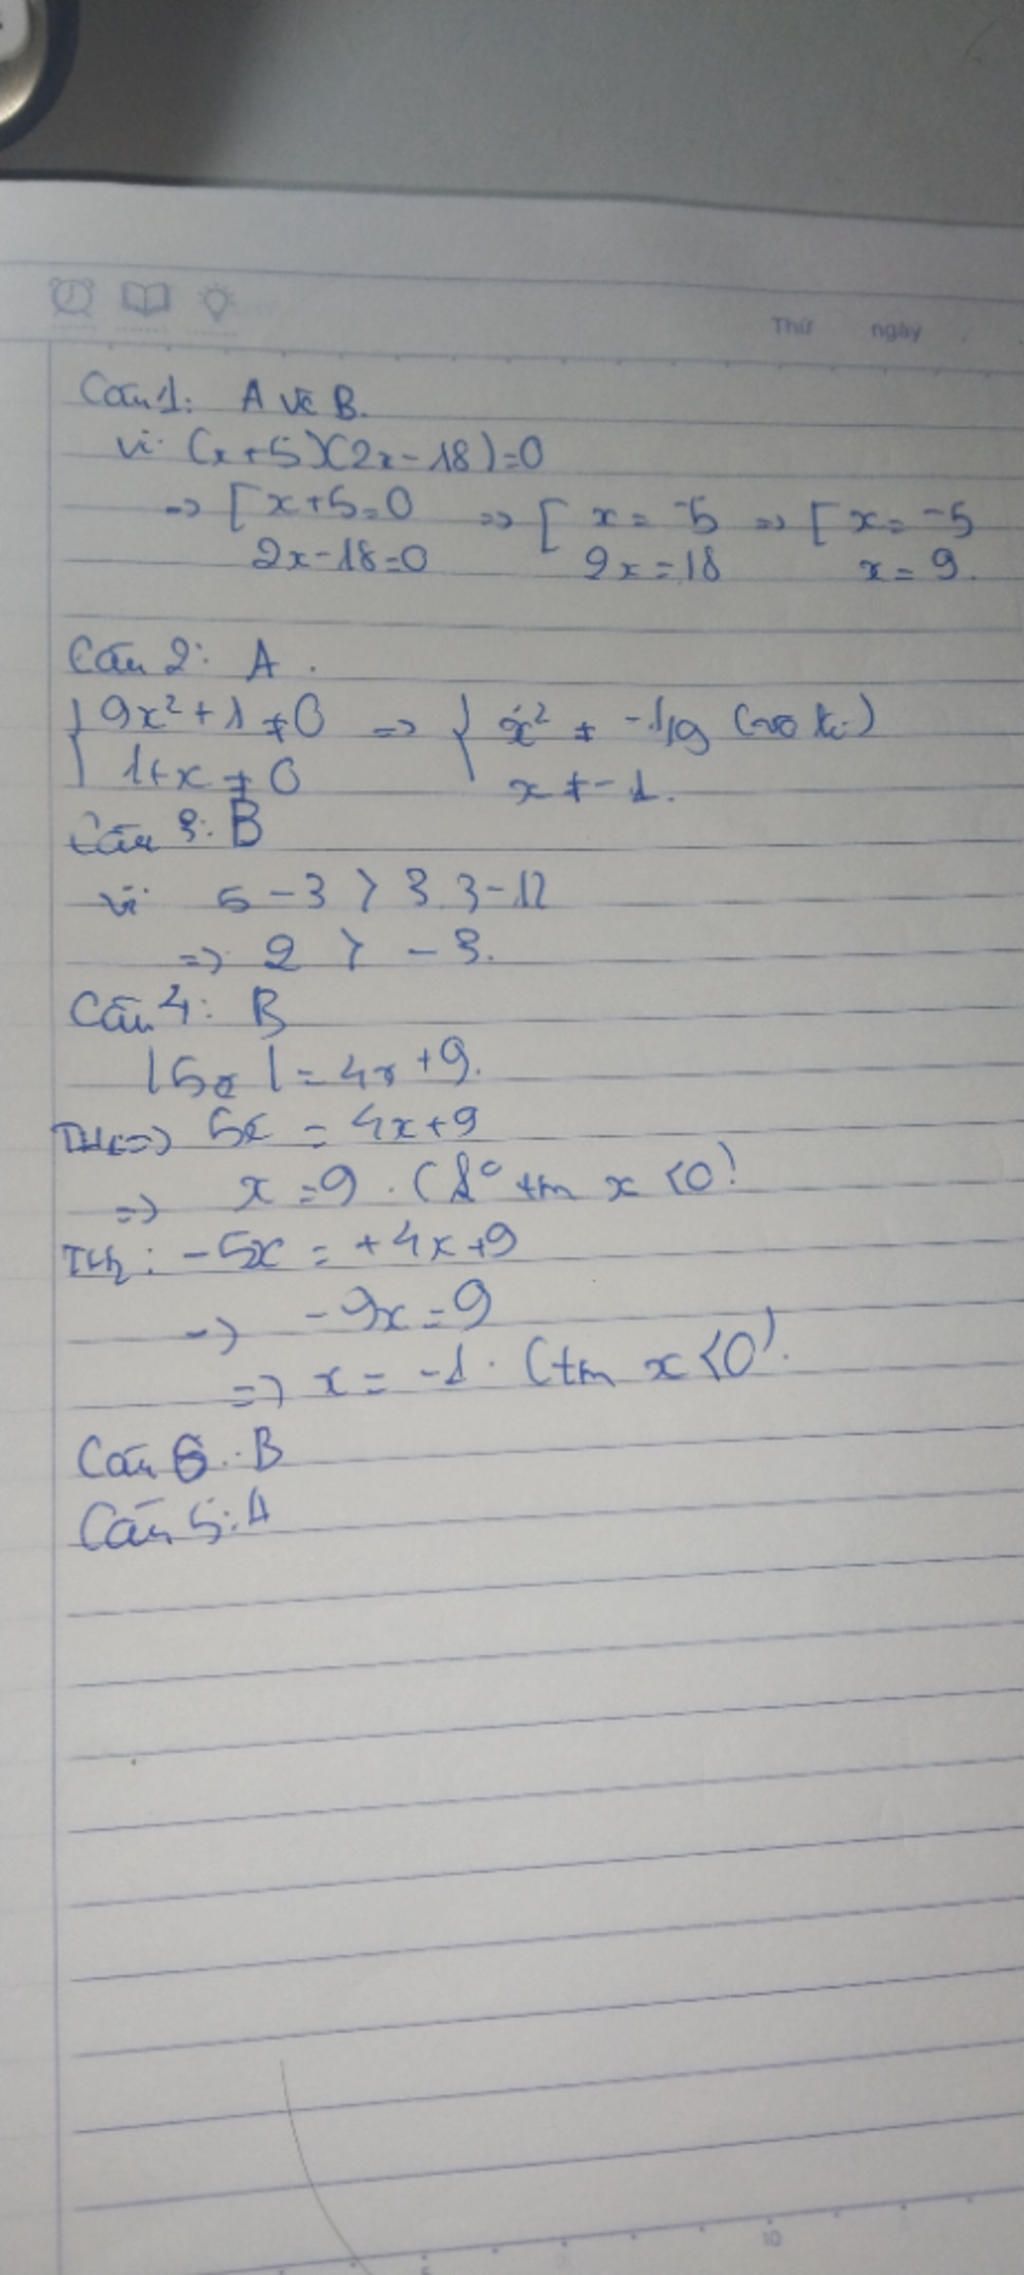 Thứ ngày
Câu 1: A và B.
vì (x+5)(2x-18)=0
=> [ x+5=0 => [ x = -5 => [ x = -5
2x-18=0 2x=18 x = 9.
Câu 2: A.
{ 9x²+1≠0 => { x² ≠ -1/9 (vô lí)
1+x≠0 x≠-1.
Câu 3: B
vì 5-3 > 3.3-12
=> 2 > -3.
Câu 4: B
|5x| = 4x+9.
TH1=> 5x = 4x+9
=> x=9. (ko tm x<0)
TH2: -5x = +4x+9
-> -9x=9
=> x = -1. (tm x<0).
Câu 6: B
Câu 5: A
10